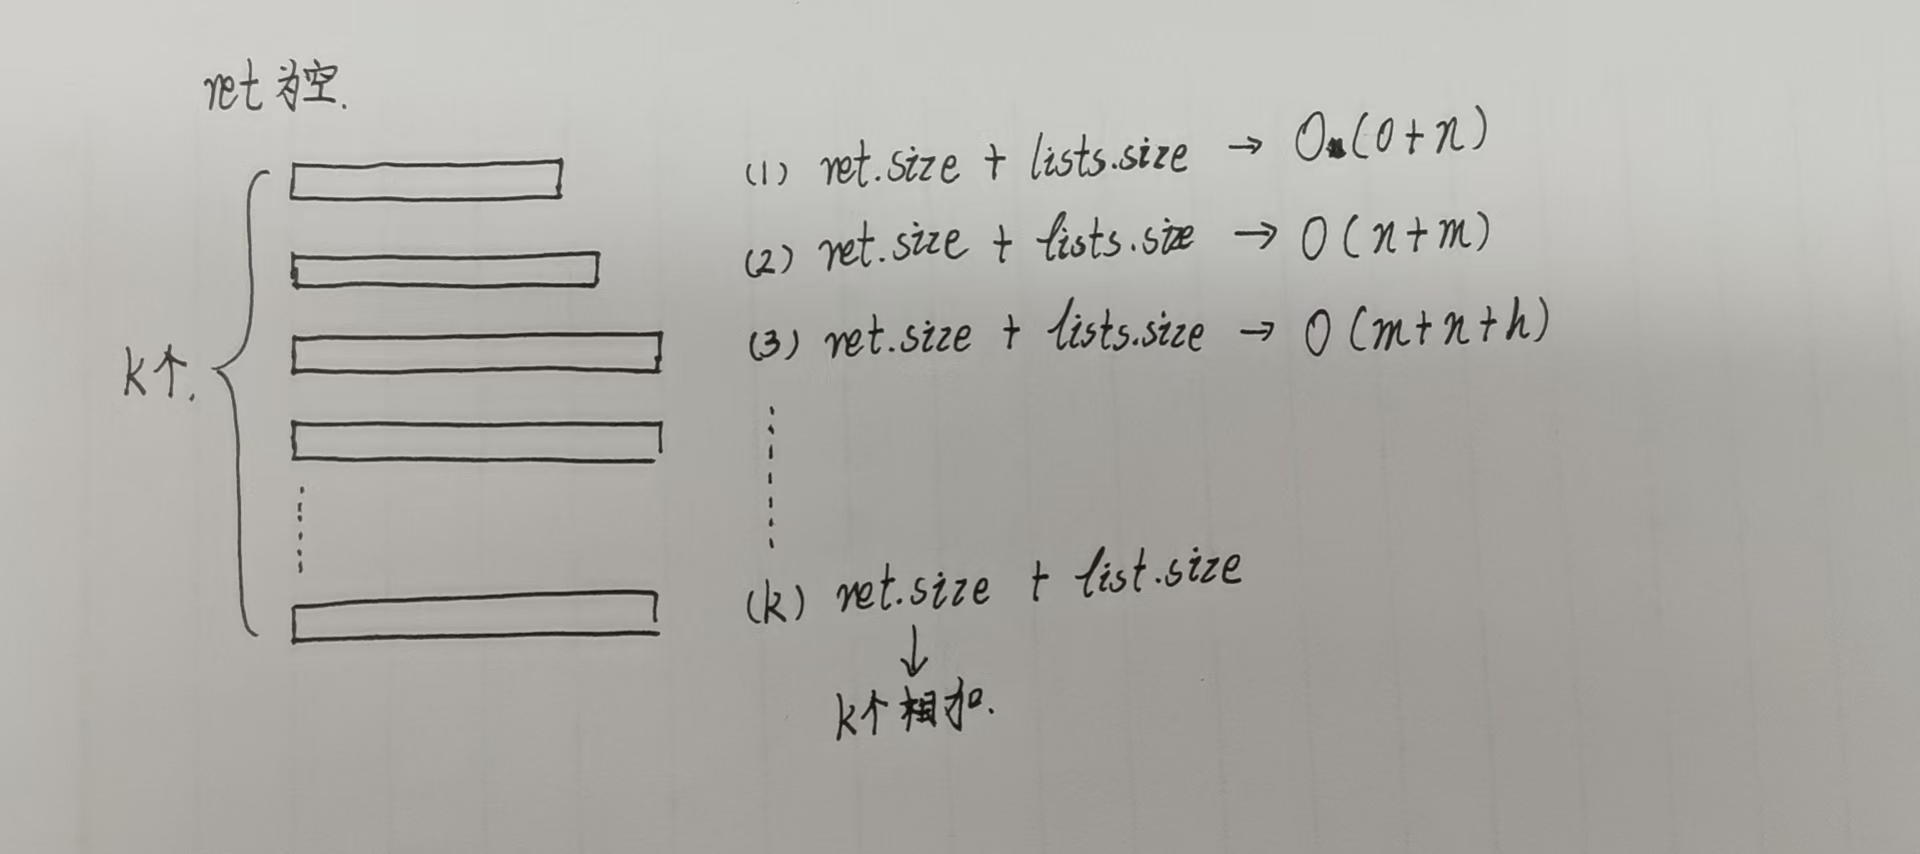 ret为空.
(1) ret.size + lists.size → O(0+n)
(2) ret.size + lists.size → O(n+m)
(3) ret.size + lists.size → O(m+n+h)
k个.
(k) ret.size + list.size
↓
k个相加.